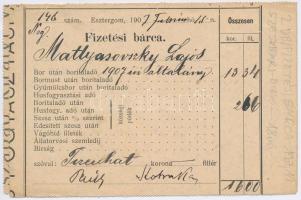 146 szám. Esztergom, 1907 Február 15 n.
Összesen
Fizetési bárca.
kor. fil.
Mattyasovszky Lajos
Bor után boritaladó 1907 én általány 13 34
Bormust után boritaladó
Gyümölcsbor után boritaladó
Husfogyasztási adó
Boritaladó után
Husfogy. adó után
községi pótlék
2 66
Szesz után % szerint
Édesített szesz után
Vágóhíd illeték
Állatorvosi szemledij
Birság
16 00
szóval: Tizenhat korona fillér